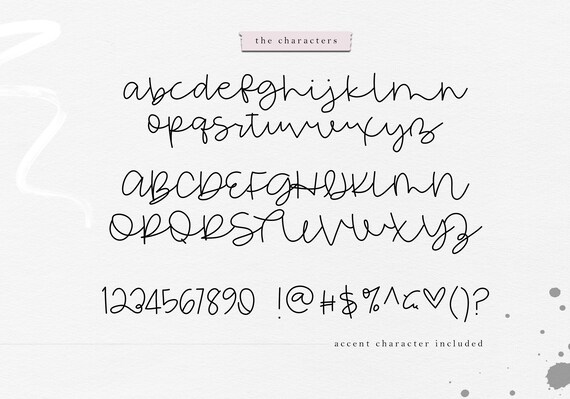 the characters
abcdefghijklmn
opqrstuvwxyz
ABCDEFGHIJKLMN
OPQRSTUVWXYZ
1234567890 !@#$%^&♡()?
accent character included